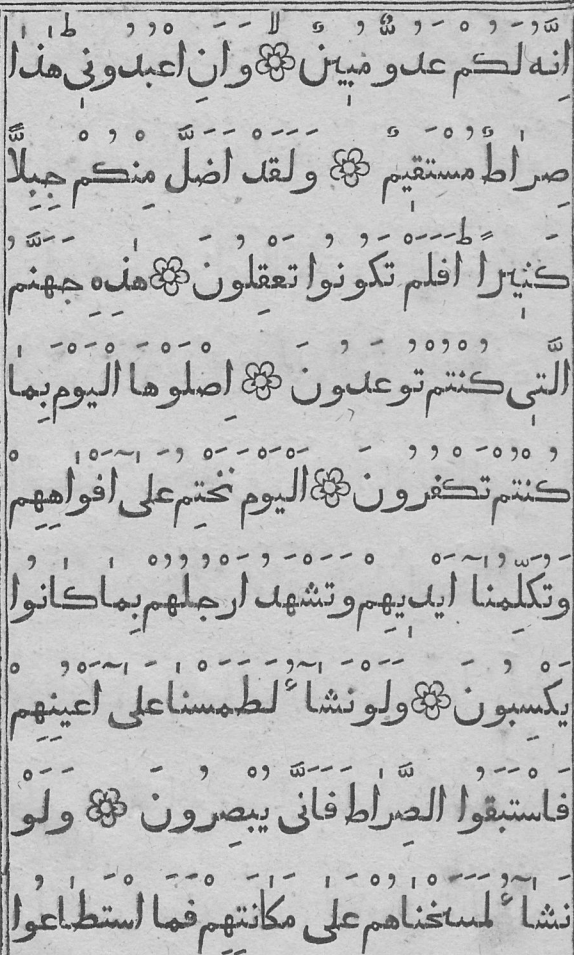 اِنَّهُ لَكُمْ عَدُوٌّ مُبِينٌ ۞ وَاَنِ اعْبُدُونِي هٰذَا
صِرَاطٌ مُسْتَقِيمٌ ۞ وَلَقَدْ اَضَلَّ مِنْكُمْ جِبِلًّا
كَثِيرًا اَفَلَمْ تَكُونُوا تَعْقِلُونَ ۞ هٰذِهِ جَهَنَّمُ
الَّتِي كُنْتُمْ تُوعَدُونَ ۞ اِصْلَوْهَا الْيَوْمَ بِمَا
كُنْتُمْ تَكْفُرُونَ ۞ اَلْيَوْمَ نَخْتِمُ عَلٰٓى اَفْوَاهِهِمْ
وَتُكَلِّمُنَٓا اَيْدِيهِمْ وَتَشْهَدُ اَرْجُلُهُمْ بِمَا كَانُوا
يَكْسِبُونَ ۞ وَلَوْ نَشَٓاءُ لَطَمَسْنَا عَلٰٓى اَعْيُنِهِمْ
فَاسْتَبَقُوا الصِّرَاطَ فَاَنّٰى يُبْصِرُونَ ۞ وَلَوْ
نَشَٓاءُ لَمَسَخْنَاهُمْ عَلٰى مَكَانَتِهِمْ فَمَا اسْتَطَاعُوا